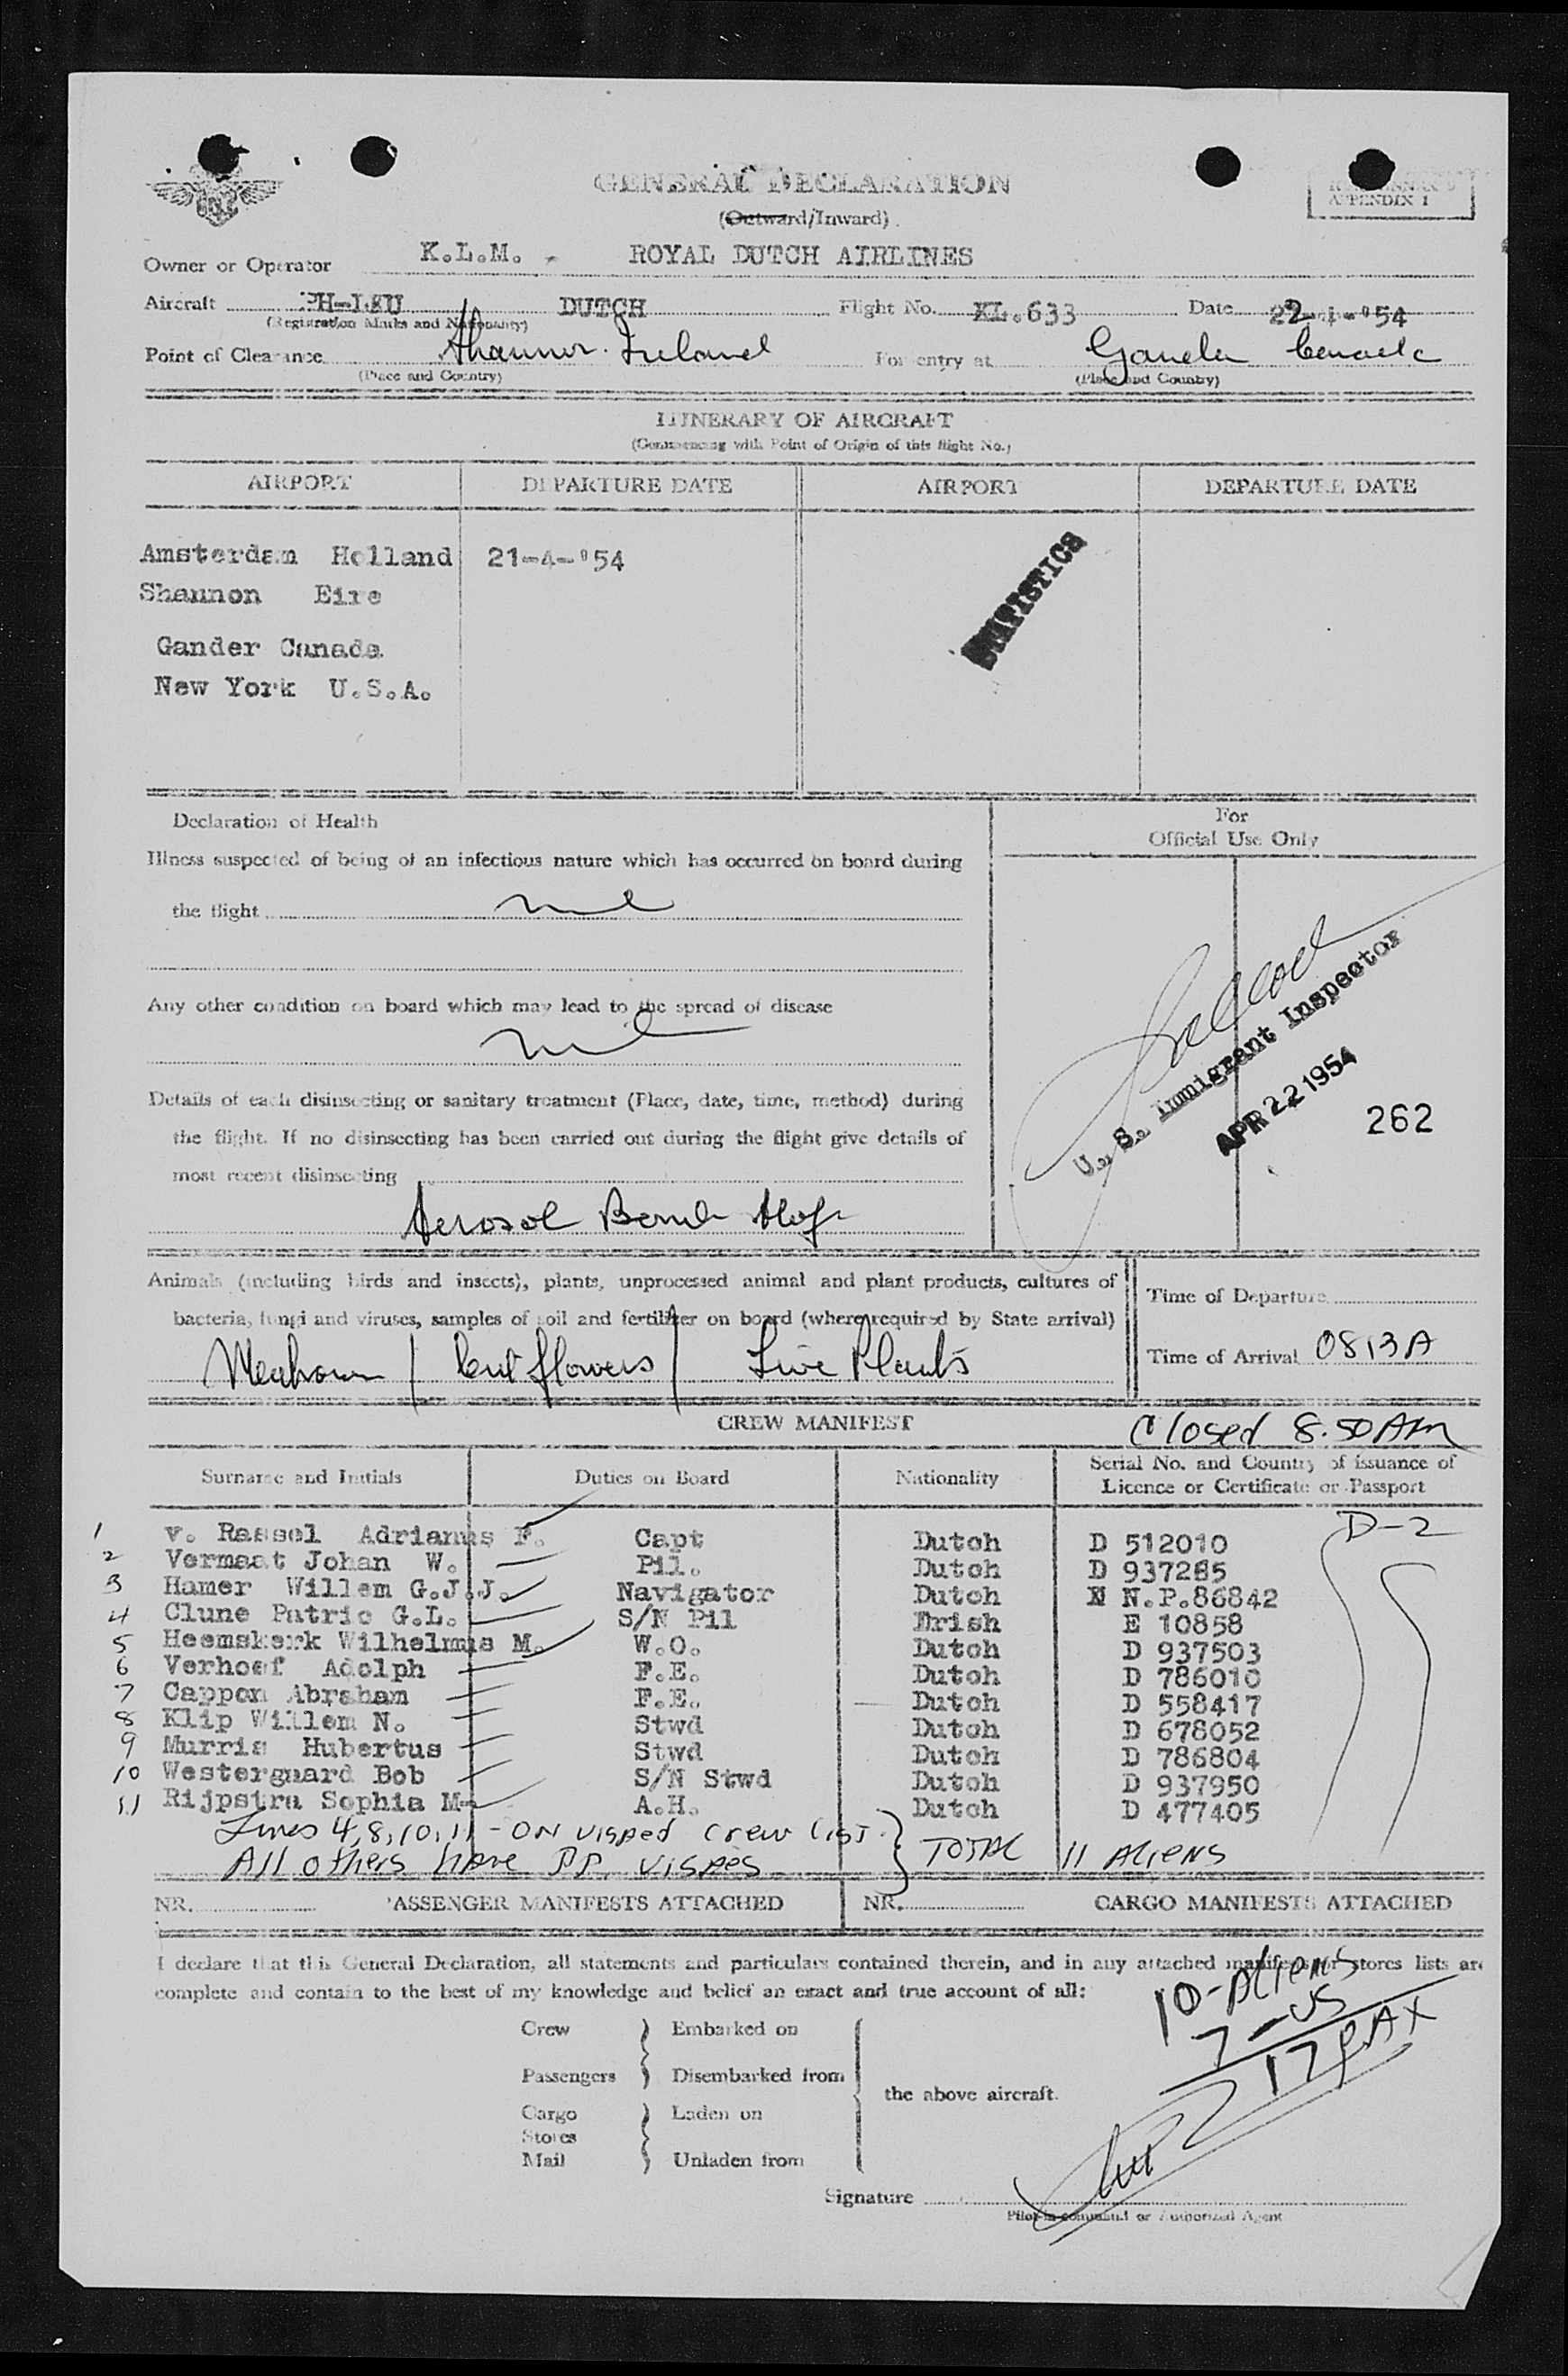 GENERAL DECLARATION
(Outward/Inward)
APPENDIX 1
Owner or Operator K.L.M. - ROYAL DUTCH AIRLINES
Aircraft DUTCH Flight No. KL.633 Date
(Registration Marks and Nationality)
Point of Clearance Shannon Ireland For entry at Gander Canada
(Place and Country) (Place and Country)
ITINERARY OF AIRCRAFT
(Commencing with Point of Origin of this flight No.)
AIRPORT DEPARTURE DATE AIRPORT DEPARTURE DATE
Amsterdam Holland 21-4-'54
Shannon Eire
Gander Canada
New York U.S.A.
STATISTICS
Declaration of Health
For
Official Use Only
Illness suspected of being of an infectious nature which has occurred on board during
the flight nil
Any other condition on board which may lead to the spread of disease
nil
U. S. Immigrant Inspector
APR 22 1954
262
Details of each disinsecting or sanitary treatment (Place, date, time, method) during
the flight. If no disinsecting has been carried out during the flight give details of
most recent disinsecting
Aerosol Bomb
Animals (including birds and insects), plants, unprocessed animal and plant products, cultures of
bacteria, fungi and viruses, samples of soil and fertilizer on board (where required by State arrival)
/ Cut flowers / Live Plants
Time of Departure
Time of Arrival 0813A
CREW MANIFEST
Closed 8.50 AM
Surname and Initials Duties on Board Nationality Serial No. and Country of issuance of
Licence or Certificate or Passport
D-2
1 v. Rassel Adrianus F. Capt Dutch D 512010
2 Vermaat Johan W. Pil. Dutch D 937285
3 Hamer Willem G.J.J. Navigator Dutch N.P.86842
4 Clune Patric G.L. S/N Pil Erish E 10858
5 Heemskerk Wilhelmus M. W.O. Dutch D 937503
6 Verhoef Adolph F.E. Dutch D 786010
7 Cappon Abraham F.E. Dutch D 558417
8 Klip Willem N. Stwd Dutch D 678052
9 Murris Hubertus Stwd Dutch D 786804
10 Westerguard Bob S/N Stwd Dutch D 937950
11 Rijpstra Sophia M. A.H. Dutch D 477405
Lines 4,8,10,11 - ON visaed crew list.
All others have PP. visaes
TOTAL 11 Aliens
NR. PASSENGER MANIFESTS ATTACHED NR. CARGO MANIFESTS ATTACHED
I declare that this General Declaration, all statements and particulars contained therein, and in any attached manifests or stores lists are
complete and contain to the best of my knowledge and belief an exact and true account of all:
10-Aliens
7-US
17 PAX
Crew Embarked on
Passengers Disembarked from
the above aircraft.
Cargo Laden on
Stores
Mail Unladen from
Signature
Pilot-in-command or Authorized Agent